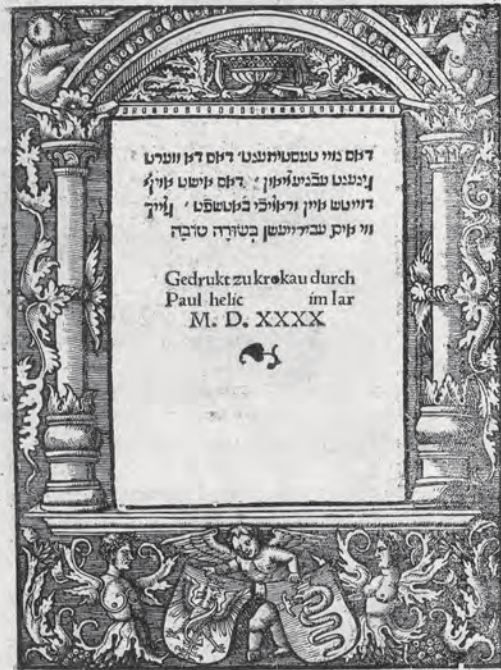 דאס נויי טעסטאמענט׳ דאס דא ווערט
גינענט דאס אישט אויף
דויטש איין ורוליכי באטשפט ׳ גלייך
ווי אים עבירייעשן בְשׂוּרָה טוֹבָה
Gedrukt zu krokau durch
Paul helic im Iar
M. D. XXXX